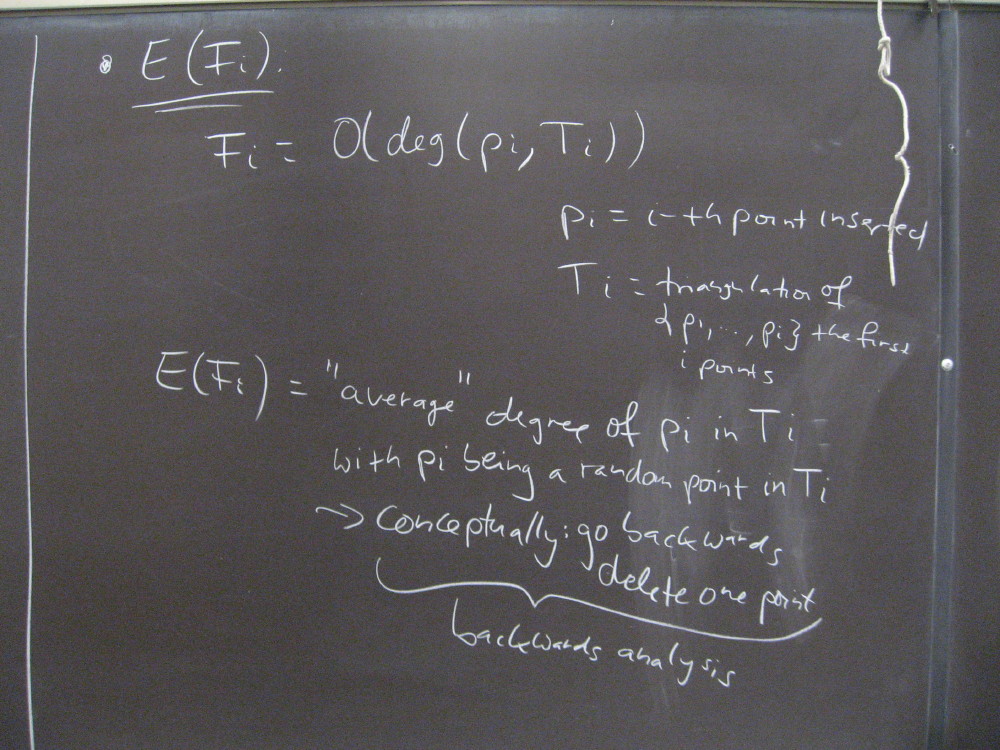 • E(Fi).
Fi = O(deg(pi, Ti))
pi = i-th point inserted
Ti = triangulation of
{pi, ..., pi} the first
i points
E(Fi) = "average" degree of pi in Ti
with pi being a random point in Ti
→ Conceptually: go backwards
delete one point
backwards analysis